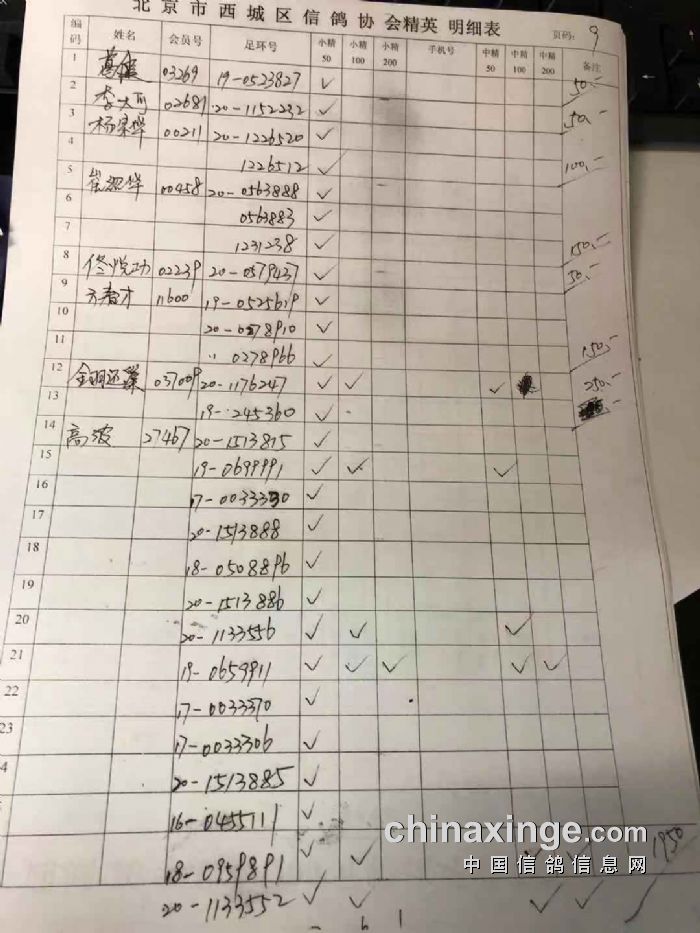 北京市西城区信鸽协会精英 明细表
页码: 9
编码 姓名 会员号 足环号 小精50 小精100 小精200 手机号 中精50 中精100 中精200 备注
1 03269 19-0523827 ✓ 50.-
2 02681 20-1152232 ✓ 50.-
3 00211 20-1226520 ✓
4 1226512 ✓ 100.-
5 00458 20-0563888 ✓
6 0563883 ✓
7 1231238 ✓ 150.-
8 佟悦功 02239 20-0579437 ✓ 50.-
9 11600 19-0525619 ✓
10 20-0278910 ✓
11 " 0278966 ✓ 150.-
12 037009 20-1176247 ✓ ✓ ✓ 250.-
13 19-245360 ✓
14 高波 27467 20-1513815 ✓
15 19-0699991 ✓ ✓ ✓
16 17-0033330 ✓
17 20-1513888 ✓
18 18-0508896 ✓
19 20-1513886 ✓
20 20-1133556 ✓ ✓ ✓
21 19-0659911 ✓ ✓ ✓ ✓ ✓
22 17-0033370 ✓
23 17-0033306 ✓
4 20-1513885 ✓
16-0455711 ✓
18-0959891 ✓ ✓
20-1133552 ✓ ✓ ✓ ✓
1950
chinaxinge.com
中国信鸽信息网